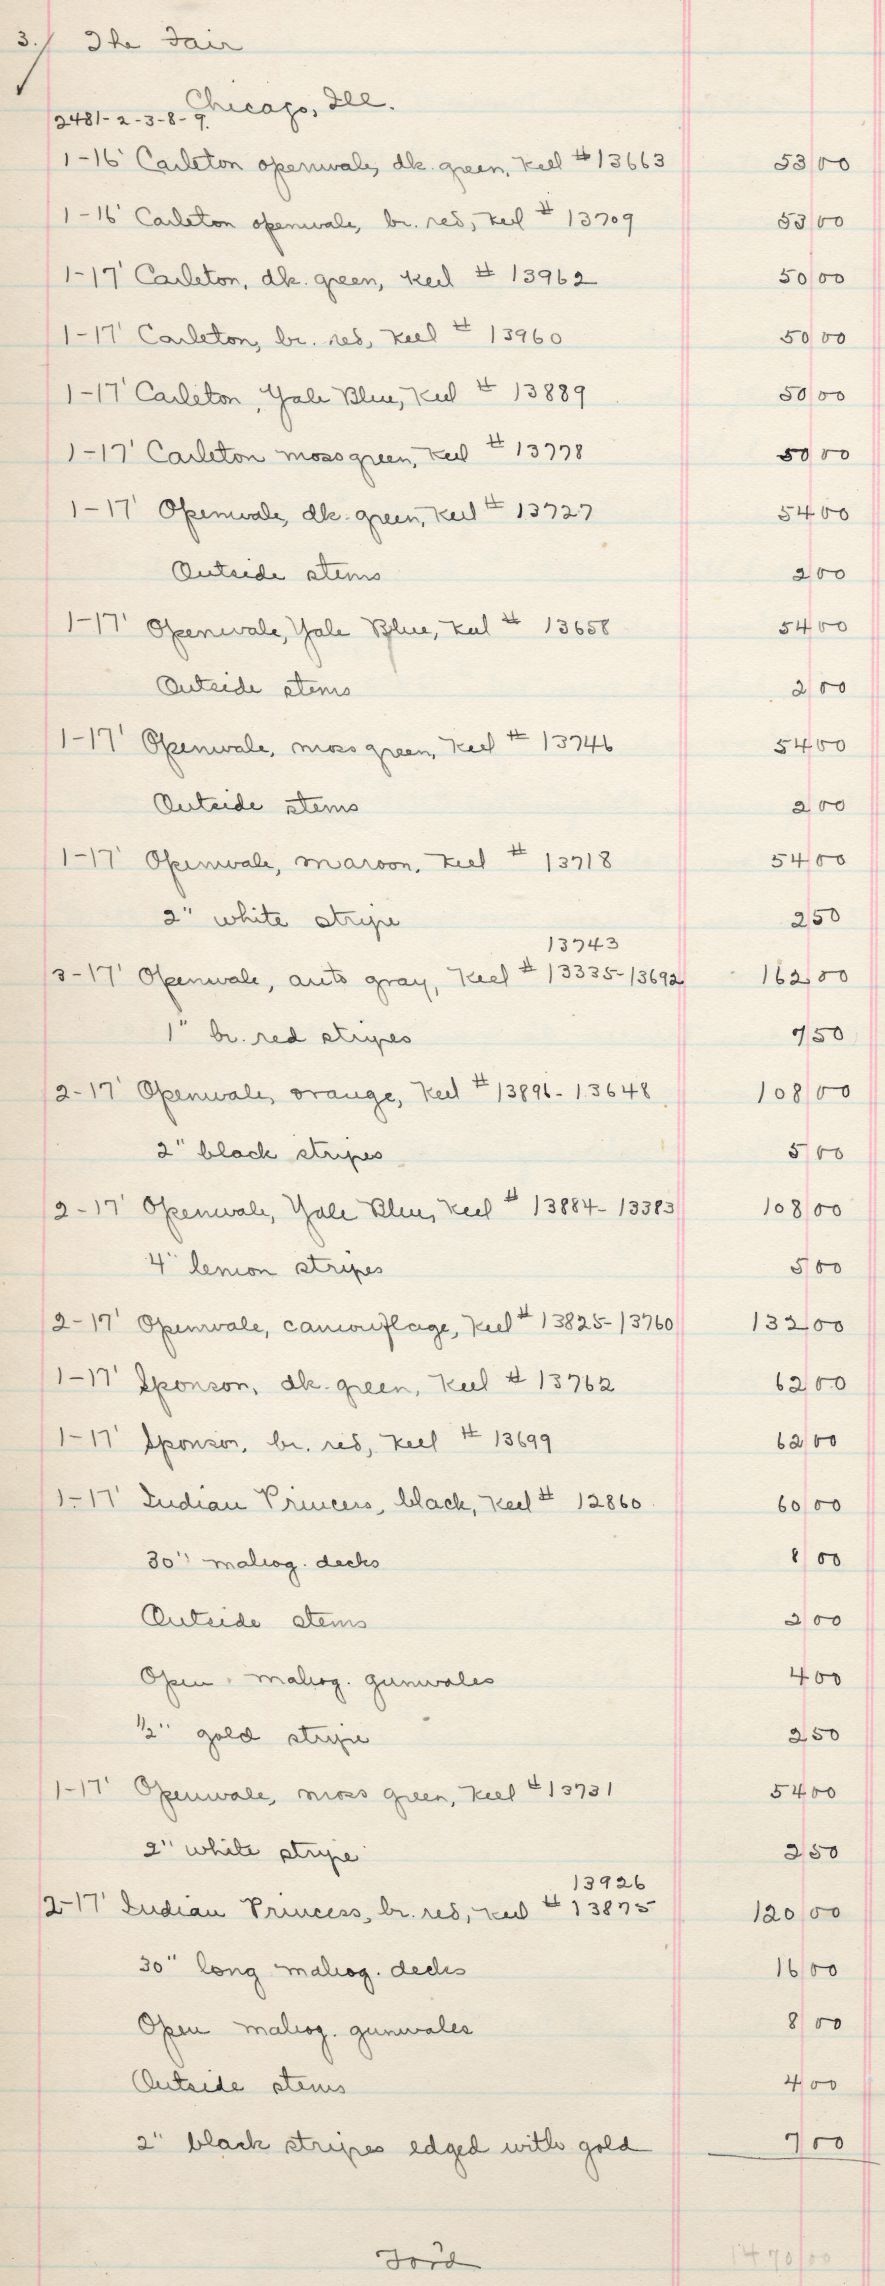 3. The Fair
Chicago, Ill.
2481-2-3-8-9.
1-16' Carleton openwale, dk. green, Keel # 13663 53 00
1-16' Carleton openwale, br. red, Keel # 13709 53 00
1-17' Carleton, dk. green, Keel # 13962 50 00
1-17' Carleton, br. red, Keel # 13960 50 00
1-17' Carleton, Yale Blue, Keel # 13889 50 00
1-17' Carleton moss green, Keel # 13778 50 00
1-17' Openwale, dk. green, Keel # 13727 54 00
Outside stems 2 00
1-17' Openwale, Yale Blue, Keel # 13658 54 00
Outside stems 2 00
1-17' Openwale, moss green, Keel # 13746 54 00
Outside stems 2 00
1-17' Openwale, maroon, Keel # 13718 54 00
2" white stripe 2 50
13743
3-17' Openwale, auto gray, Keel # 13335-13692 162 00
1" br. red stripes 7 50
2-17' Openwale, orange, Keel # 13896-13648 108 00
2" black stripes 5 00
2-17' Openwale, Yale Blue, Keel # 13884-13383 108 00
4" lemon stripes 5 00
2-17' Openwale, camouflage, Keel # 13825-13760 132 00
1-17' Sponson, dk. green, Keel # 13762 62 00
1-17' Sponson, br. red, Keel # 13699 62 00
1-17' Indian Princess, black, Keel # 12860 60 00
30" mahog. decks 8 00
Outside stems 2 00
Open mahog. gunwales 4 00
1/2" gold stripe 2 50
1-17' Openwale, moss green, Keel # 13731 54 00
2" white stripe 2 50
13926
2-17' Indian Princess, br. red, Keel # 13875 120 00
30" long mahog. decks 16 00
Open mahog. gunwales 8 00
Outside stems 4 00
2" black stripes edged with gold 7 00
For'd 1470 00